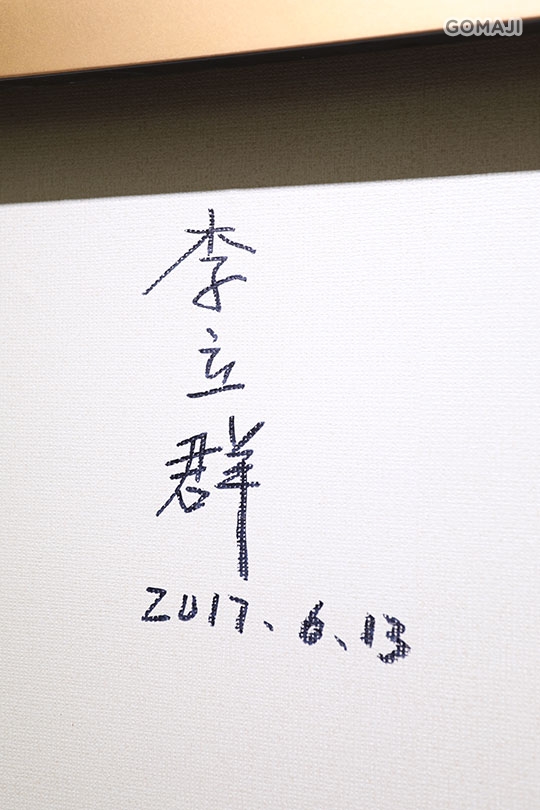 GOMAJI
李立群
2017.6.13